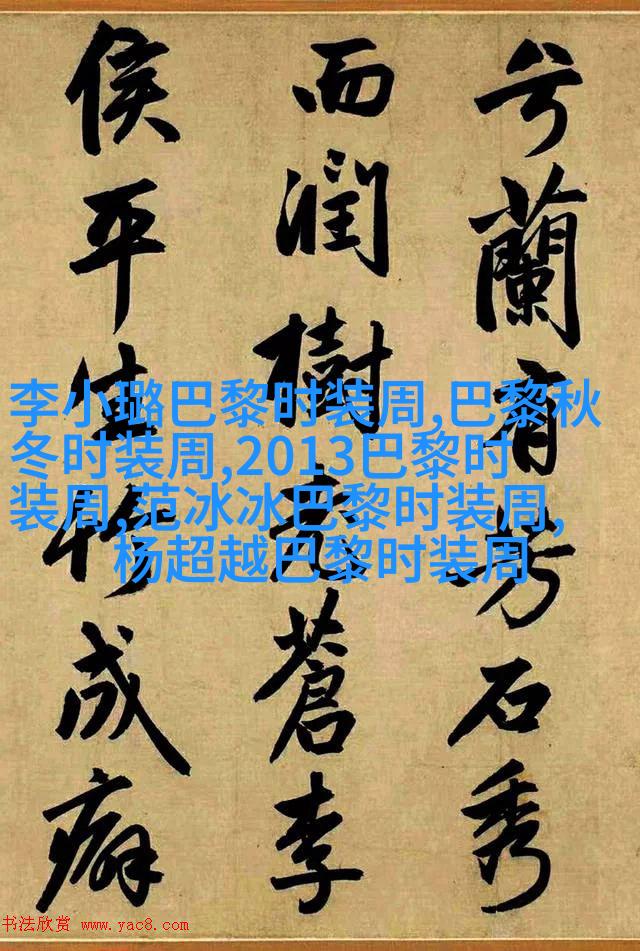 兮蘭有芳石秀
而潤樹蒼李
侯平生竹成癖
李小璐巴黎时装周,巴黎秋
冬时装周,2013巴黎时
装周,范冰冰巴黎时装周,
杨超越巴黎时装周
书法欣赏 www.yac8.com